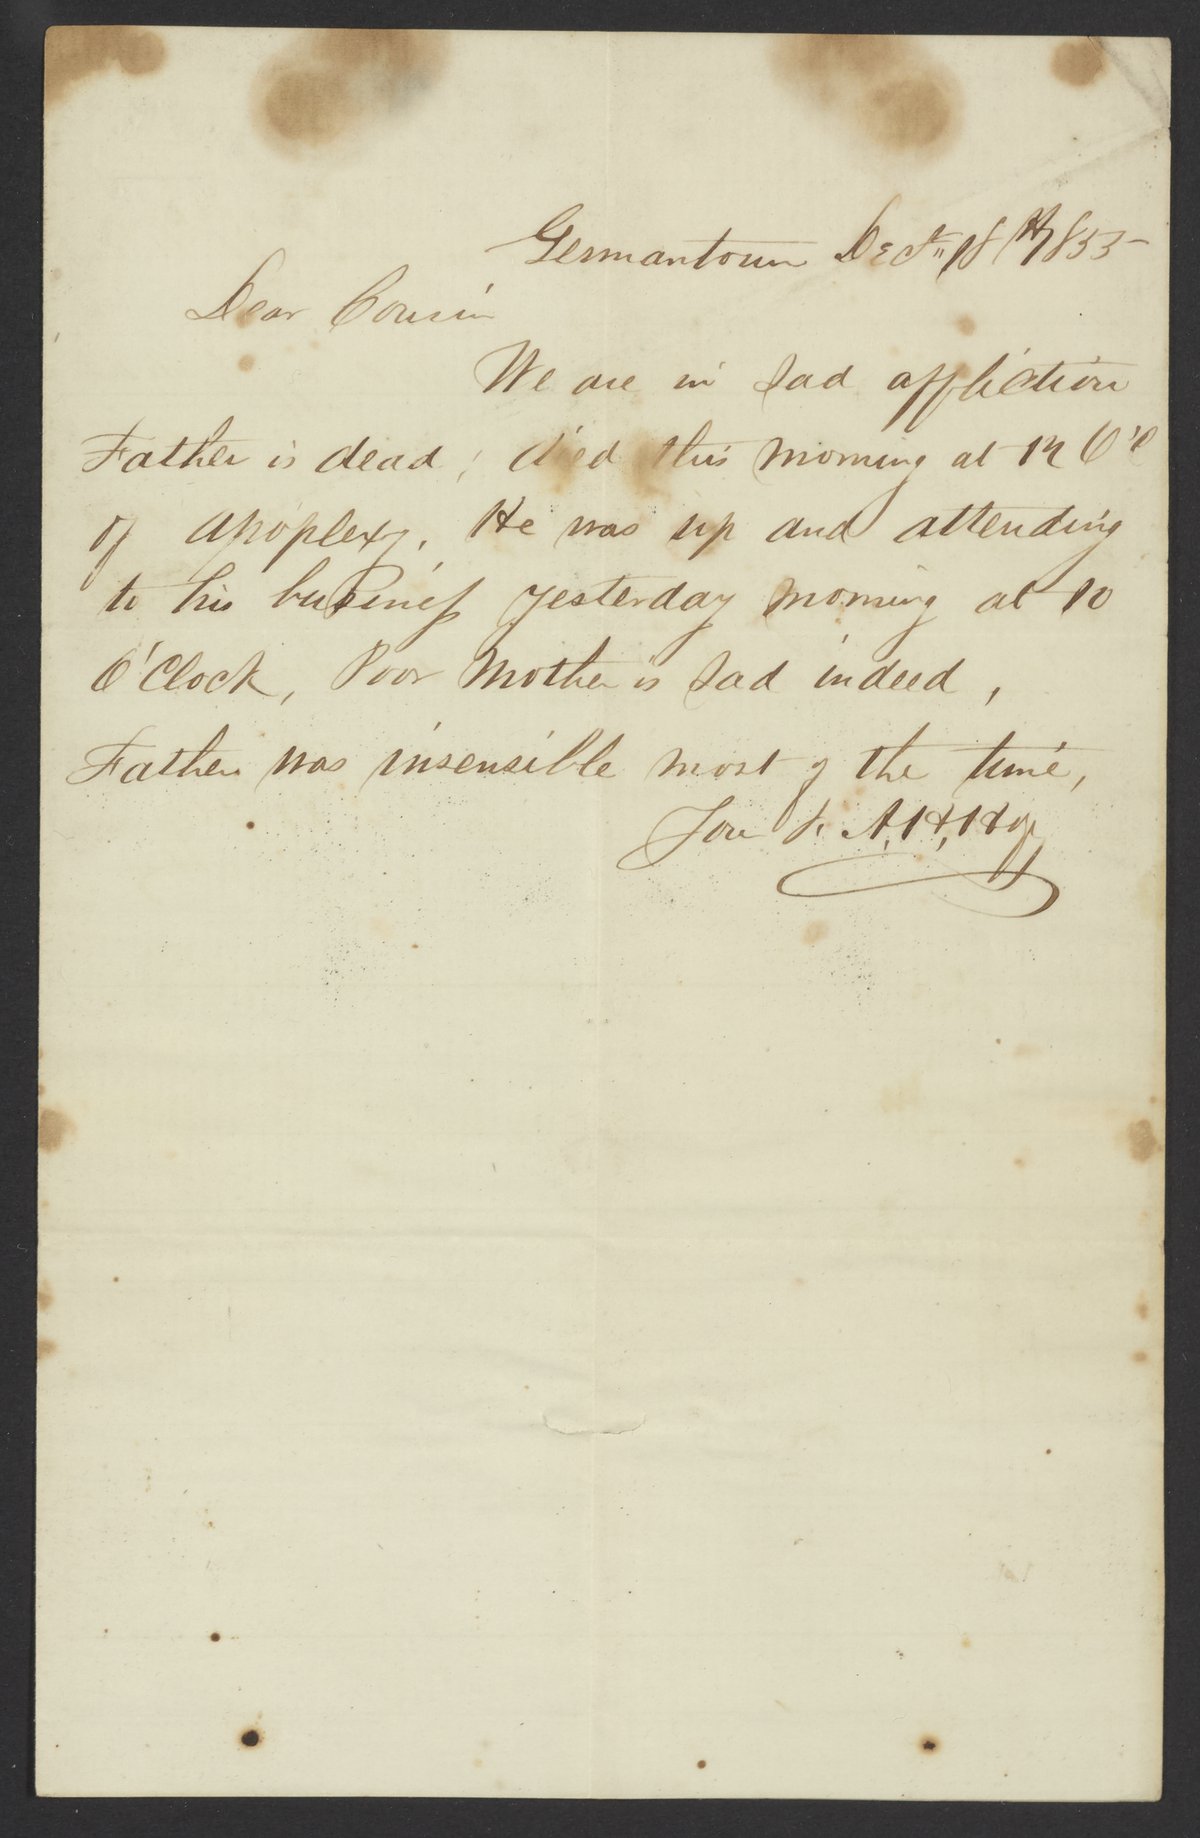 Germantown Dec.r 18th 1855
Dear Cousin
We are in sad affliction
Father is dead; died this morning at 12 O'C
of apoplexy. He was up and attending
to his business yesterday morning at 10
O'Clock, Poor Mother is sad indeed,
Father was insensible most of the time,
A, H, Hop